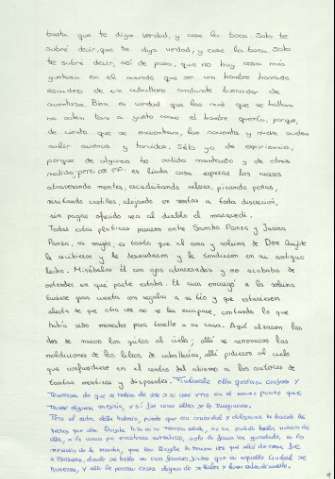 basta que te diga verdad, y cose la boca. Solo te
sabré decir, que te diga verdad, y cose la boca. Solo
te sabré decir, así de paso, que no hay cosa más
gustosa en el mundo que ser un hombre honrado
escudero de un caballero andante buscador de
aventuras. Bien es verdad que las más que se hallan
no salen tan a gusto como el hombre querría, porque,
de ciento que se encuentran, las noventa y nueve suelen
salir aviesas y torcidas. Sélo yo de expiriencia,
porque de algunas he salido manteado y de otras
molido; pero es linda cosa esperar los sucesos
atravesando montes, escudriñando selvas, pisando peñas,
visitando castillos, alojando en ventas a toda discreción,
sin pagar ofrecido sea al diablo el maravedí.
Todas estas pláticas pasaron entre Sancho Panza y Juana
Panza, su mujer, en tanto que el ama y sobrina de Don Quijote
le recibieron y le desnudaron y le tendieron en su antiguo
lecho. Mirábalas él con ojos atravesados y no acababa de
entender en qué parte estaba. El cura encargó a la sobrina
tuviese gran cuenta con regalar a su tío y que estuviesen
alerta de que otra vez no se les escapase, contando lo que
había sido menester para traelle a su casa. Aquí alzaron las
dos de nuevo los gritos al cielo; allí se renovaron las
maldiciones de los libros de caballerías, allí pidieron al cielo
que confundiese en el centro del abismo a los autores de
tantas mentiras y disparates. Finalmente, ellas quedaron confusas y
temerosas de que se habían de ver sin su amo y tío en el mesmo punto que
tuviese alguna mejoría, y sí fue como ellas se lo imaginaron.
Pero el autor desta historia, puesto que con curiosidad y diligencia ha buscado los
hechos que Don Quijote hizo en su tercera salida, no ha podido hallar noticia de
ellas, a lo menos por escrituras auténticas, sólo la fama ha guardado, en las
memorias de la Mancha, que Don Quijote la tercera vez que salió de su casa fue
a Zaragoza, donde se halló en unas famosas justas que en aquella ciudad se
hicieron, y allí le pasaron cosas dignas de su valor y buen entendimiento.